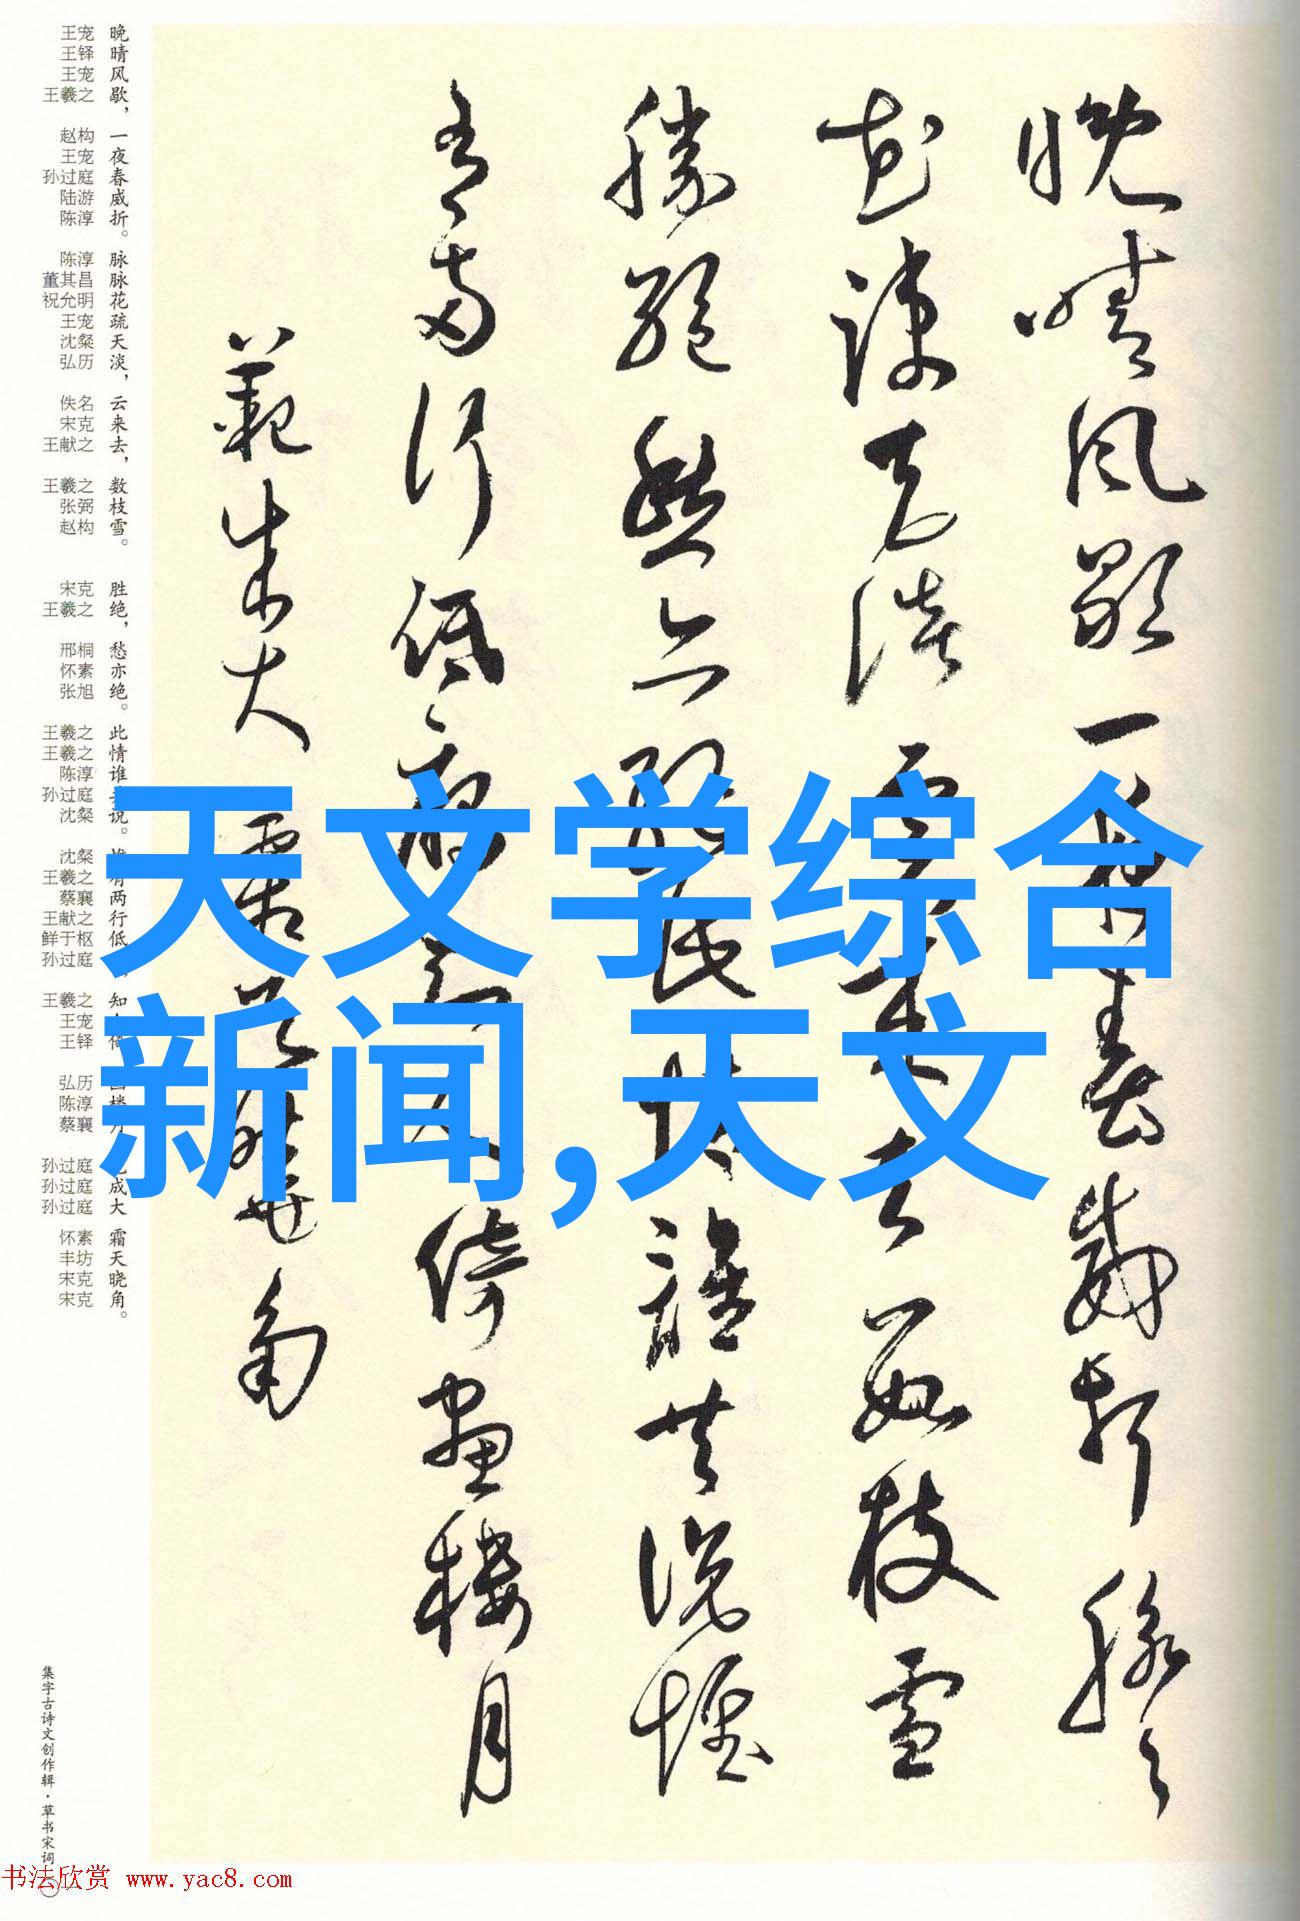 天文学综合
新闻,天文
晚晴風歇一夜春威折脉々
花疎天淡雲来去数枝雪
勝絶愁亦絶此情誰共説惟
有兩行低雁知人倚畫樓月
範成大 霜天曉角
晚晴风歇，一夜春威折。脉脉花疏天淡，云来去，数枝雪。 胜绝，愁亦绝。此情谁说。有两行低 知 成大 霜天晓角。
王宠 王铎 王宠 王羲之 赵构 王宠 孙过庭 陆游 陈淳 陈淳 董其昌 祝允明 王宠 沈粲 弘历 佚名 宋克 王献之 王羲之 张弼 赵构 宋克 王羲之 邢桐 怀素 张旭 王羲之 王羲之 陈淳 孙过庭 沈粲 沈粲 王羲之 蔡襄 王献之 鲜于枢 孙过庭 王羲之 王宠 王铎 弘历 陈淳 蔡襄 孙过庭 孙过庭 孙过庭 怀素 丰坊 宋克 宋克
集字古诗文创作辑·草书宋词
书法欣赏 www.yac8.com